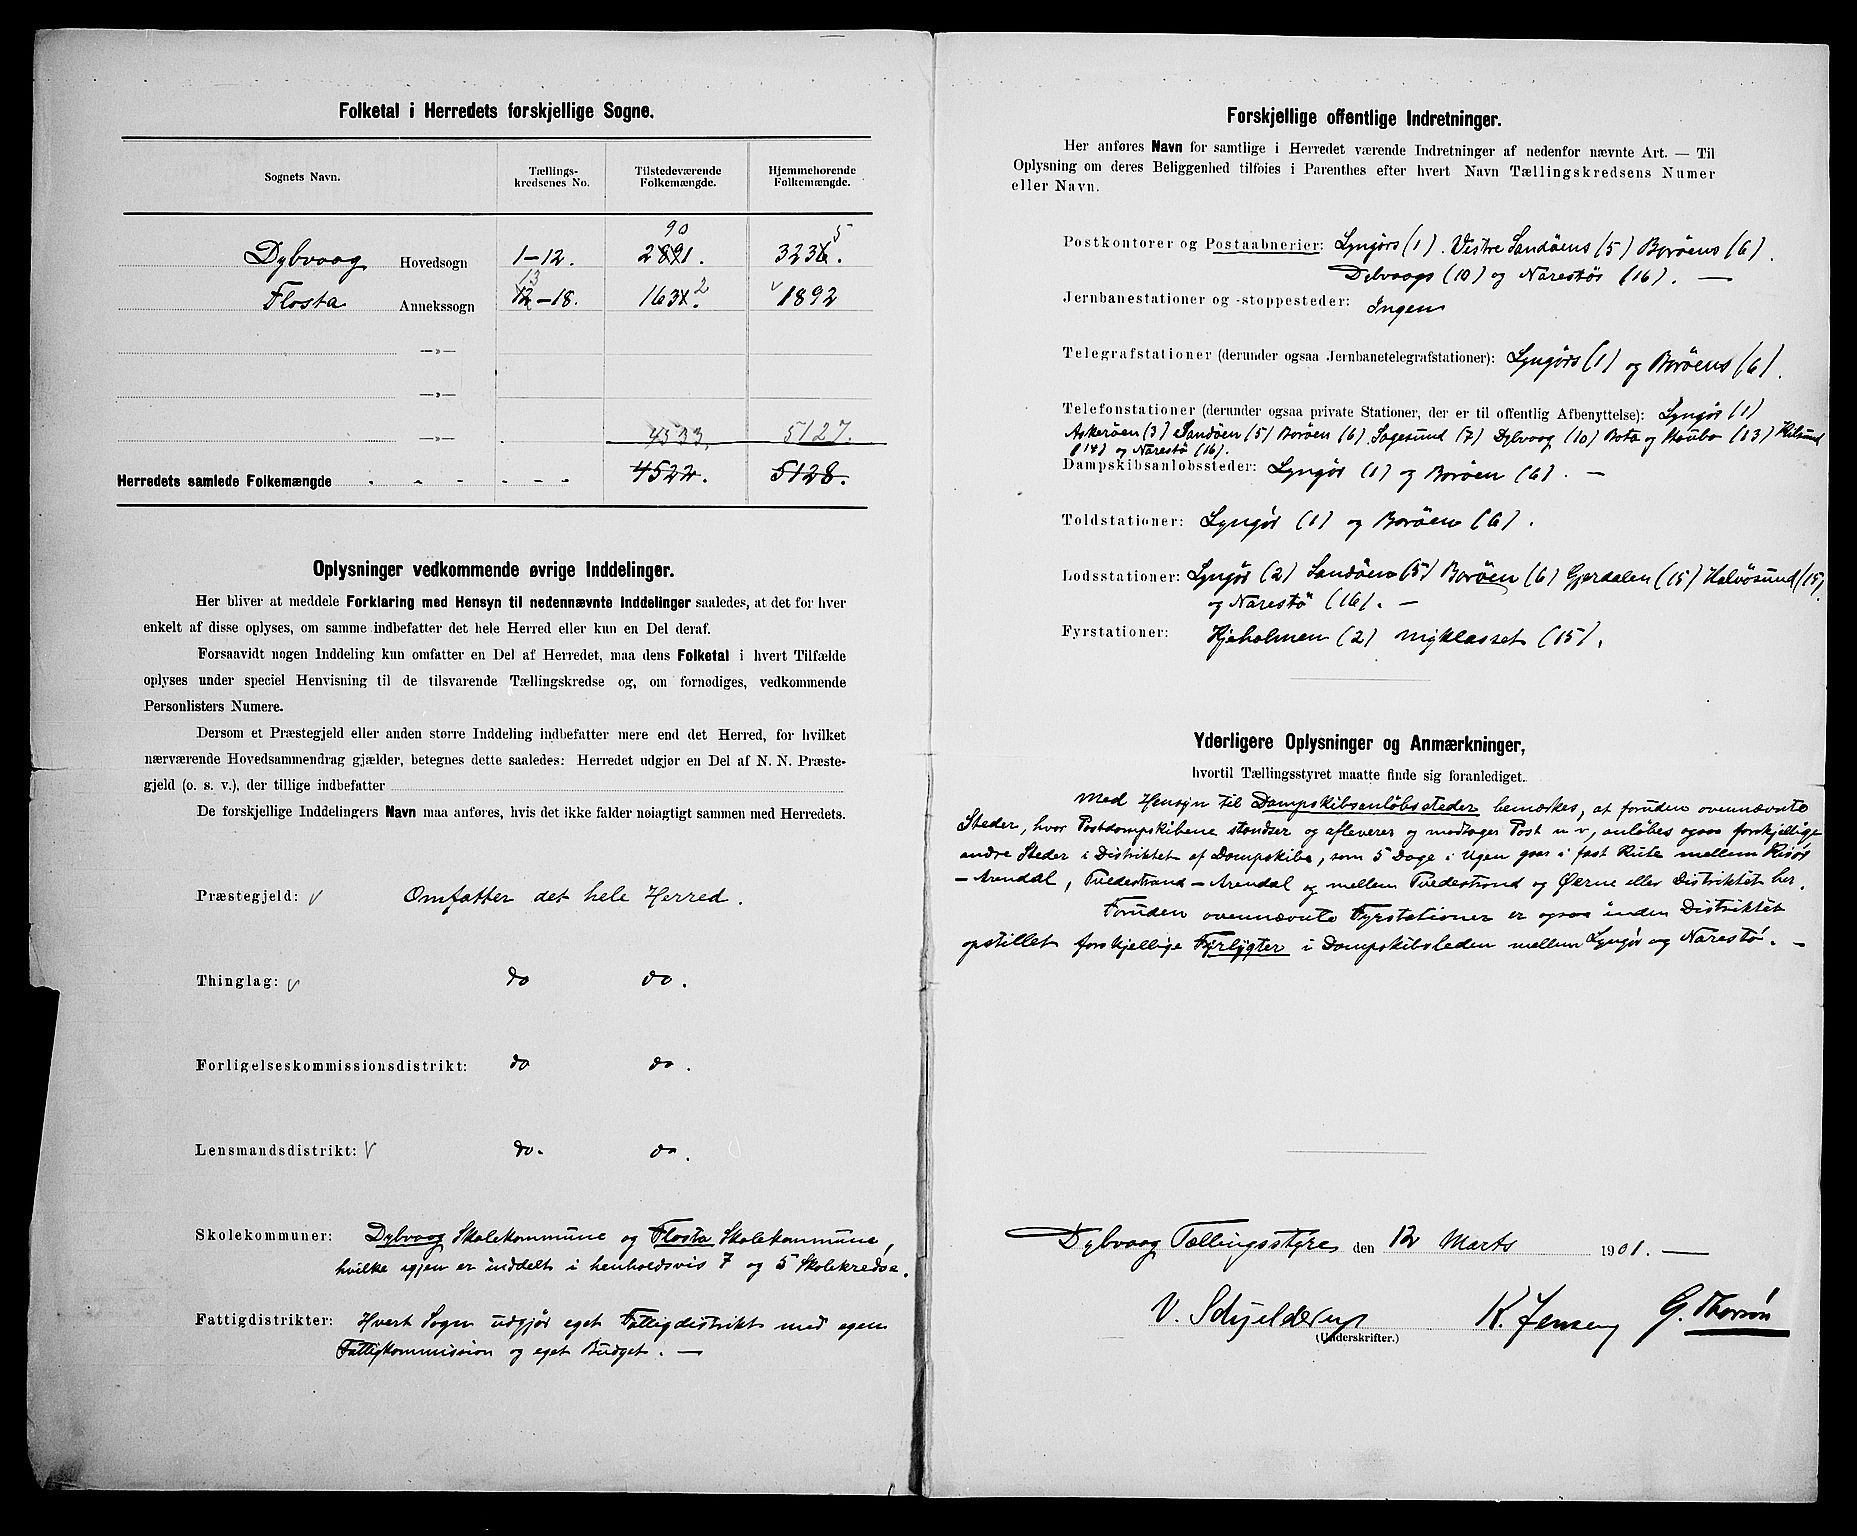 Folketal i Herredets forskjellige Sogne.
Sognets Navn. Tællings-kredsenes No. Tilstedeværende Folkemængde. Hjemmehørende Folkemængde.
90 5
Dybvaag Hovedsogn 1-12. 2891. 3236.
13 2
Flosta Annekssogn 12-18. 1631. v 1892
—»—
—»—
—»— 4533. 5127.
Herredets samlede Folkemængde 4522. 5128.
Oplysninger vedkommende øvrige Inddelinger.
Her bliver at meddele Forklaring med Hensyn til nedennævnte Inddelinger saaledes, at det for hver
enkelt af disse oplyses, om samme indbefatter det hele Herred eller kun en Del deraf.
Forsaavidt nogen Inddeling kun omfatter en Del af Herredet, maa dens Folketal i hvert Tilfælde
oplyses under speciel Henvisning til de tilsvarende Tællingskredse og, om fornødiges, vedkommende
Personlisters Numere.
Dersom et Præstegjeld eller anden større Inddeling indbefatter mere end det Herred, for hvilket
nærværende Hovedsammendrag gjælder, betegnes dette saaledes: Herredet udgjør en Del af N. N. Præste-
gjeld (o. s. v.), der tillige indbefatter
De forskjellige Inddelingers Navn maa anføres, hvis det ikke falder nøiagtigt sammen med Herredets.
Præstegjeld: v Omfatter det hele Herred.
Thinglag: v do do.
Forligelseskommissionsdistrikt: do do.
Lensmandsdistrikt: v do. do.
Skolekommuner: Dybvaag Skolekommune og Flosta Skolekommune,
hvilke igjen er inddelt i henholdsvis 7 og 5 Skolekredse.
Fattigdistrikter: Hvert Sogn udgjør eget Fattigdistrikt med egen
Fattigkommission og eget Budget. —
Forskjellige offentlige Indretninger.
Her anføres Navn for samtlige i Herredet værende Indretninger af nedenfor nævnte Art. — Til
Oplysning om deres Beliggenhed tilføies i Parenthes efter hvert Navn Tællingskredsens Numer
eller Navn.
Postkontorer og Postaabnerier: Lyngørs (1). Vestre Sandøens (5) Borøens (6).
Dybvaags (10) og Narestøs (16). —
Jernbanestationer og -stoppesteder: Ingen
Telegrafstationer (derunder ogsaa Jernbanetelegrafstationer): Lyngørs (1) og Borøens (6).
Telefonstationer (derunder ogsaa private Stationer, der er til offentlig Afbenyttelse): Lyngør (1)
Askerøen (3) Sandøen (5) Borøen (6) Sagesund (7) Dybvaag (10) Bota og Staubø (13) Kilsund
(14) og Narestø (16).
Dampskibsanløbssteder: Lyngør (1) og Borøen (6). —
Toldstationer: Lyngør (1) og Borøen (6).
Lodsstationer: Lyngør (2) Sandøen (5) Borøen (6) Gjerdalen (15) Halvøsund (15)
og Narestø (16). —
Fyrstationer: Kjeholmen (2) Mykladset (15).
Yderligere Oplysninger og Anmærkninger,
hvortil Tællingsstyret maatte finde sig foranlediget.
Med Hensyn til Dampskibsanløbssteder bemærkes, at foruden ovennævnte
Steder, hvor Postdampskibene standser og afleverer og modtager Post u v, anløbes ogsaa forskjellige
andre Steder i Distriktet af Dampskibe, som 5 Dage i Ugen gaar i fast Rute mellem Risør
– Arendal, Tvedestrand – Arendal og mellem Tvedestrand og Øerne eller Distriktet her.
Foruden ovennævnte Fyrstationer er ogsaa inden Distriktet
opstillet forskjellige Fyrlygter i Dampskibsleden mellem Lyngør og Narestø. —
Dybvaag Tællingsstyre den 12 Marts 1901. —
V. Schjelderup K. Jensen G. Thorsøn
(Underskrifter.)